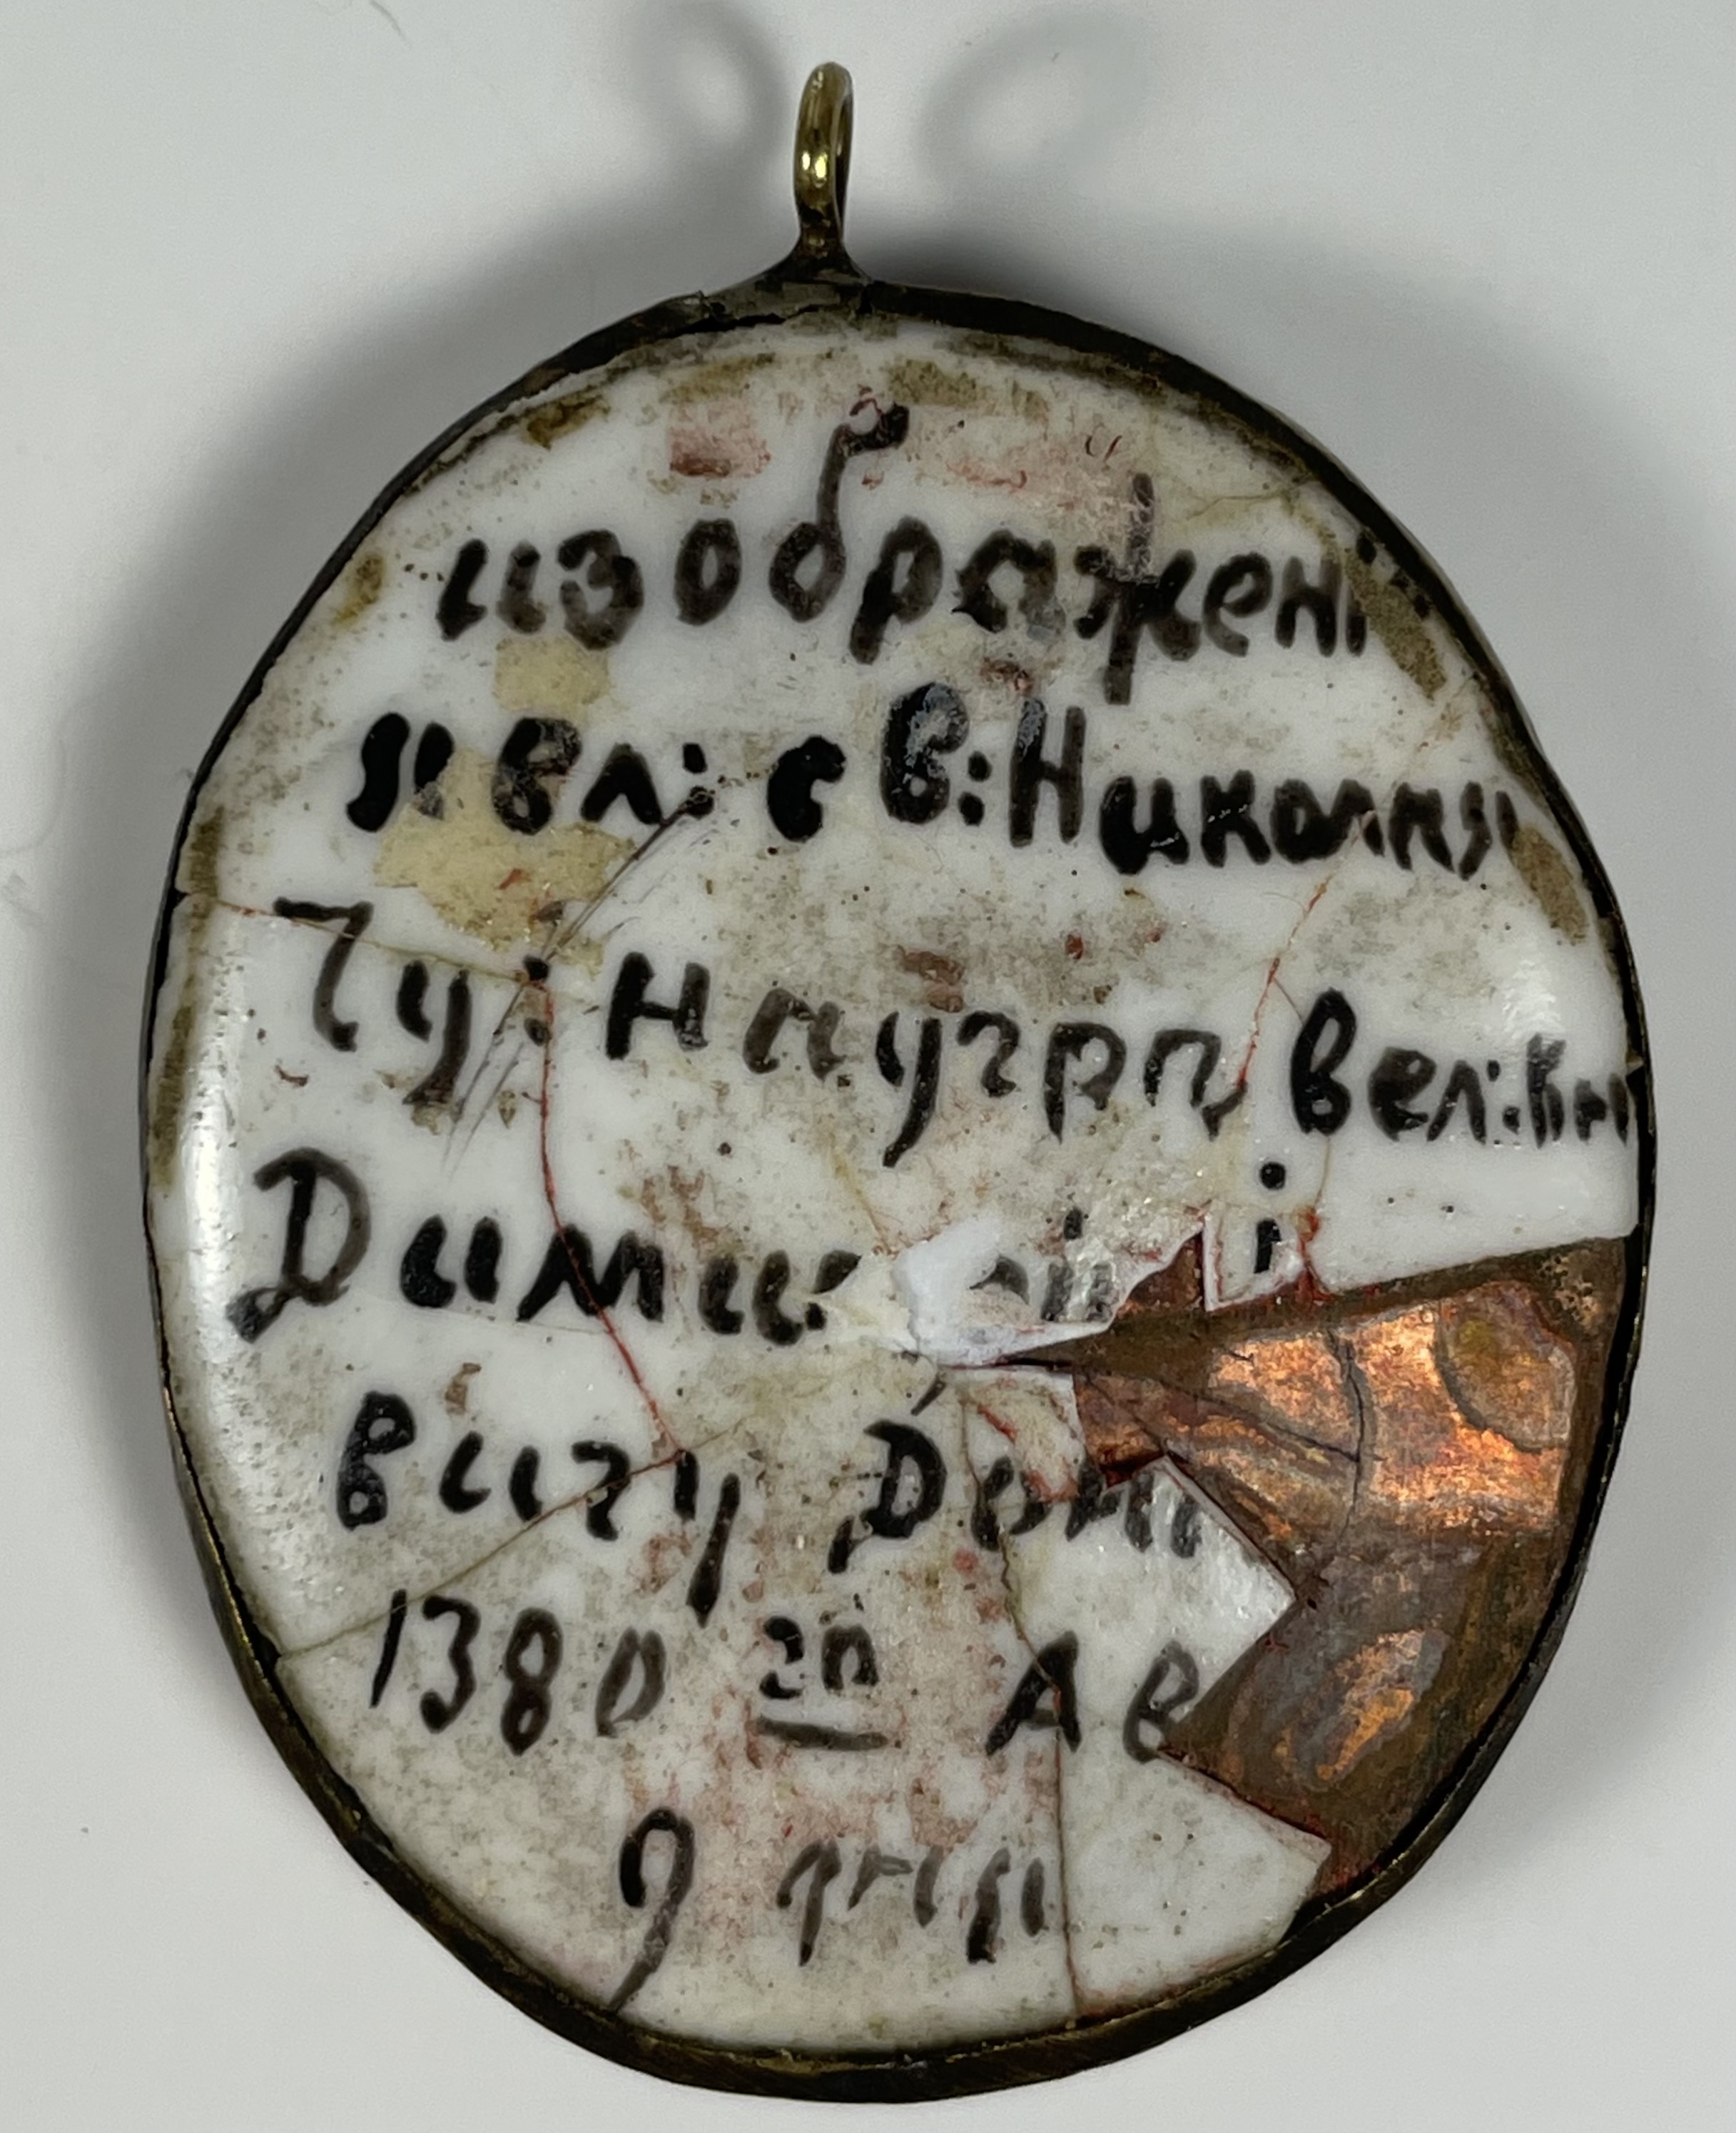 изображені
явл: св: Николая
Чу: на угрп, вел: кн
Дими
вичу Дон
1380 го Ав
9 дня